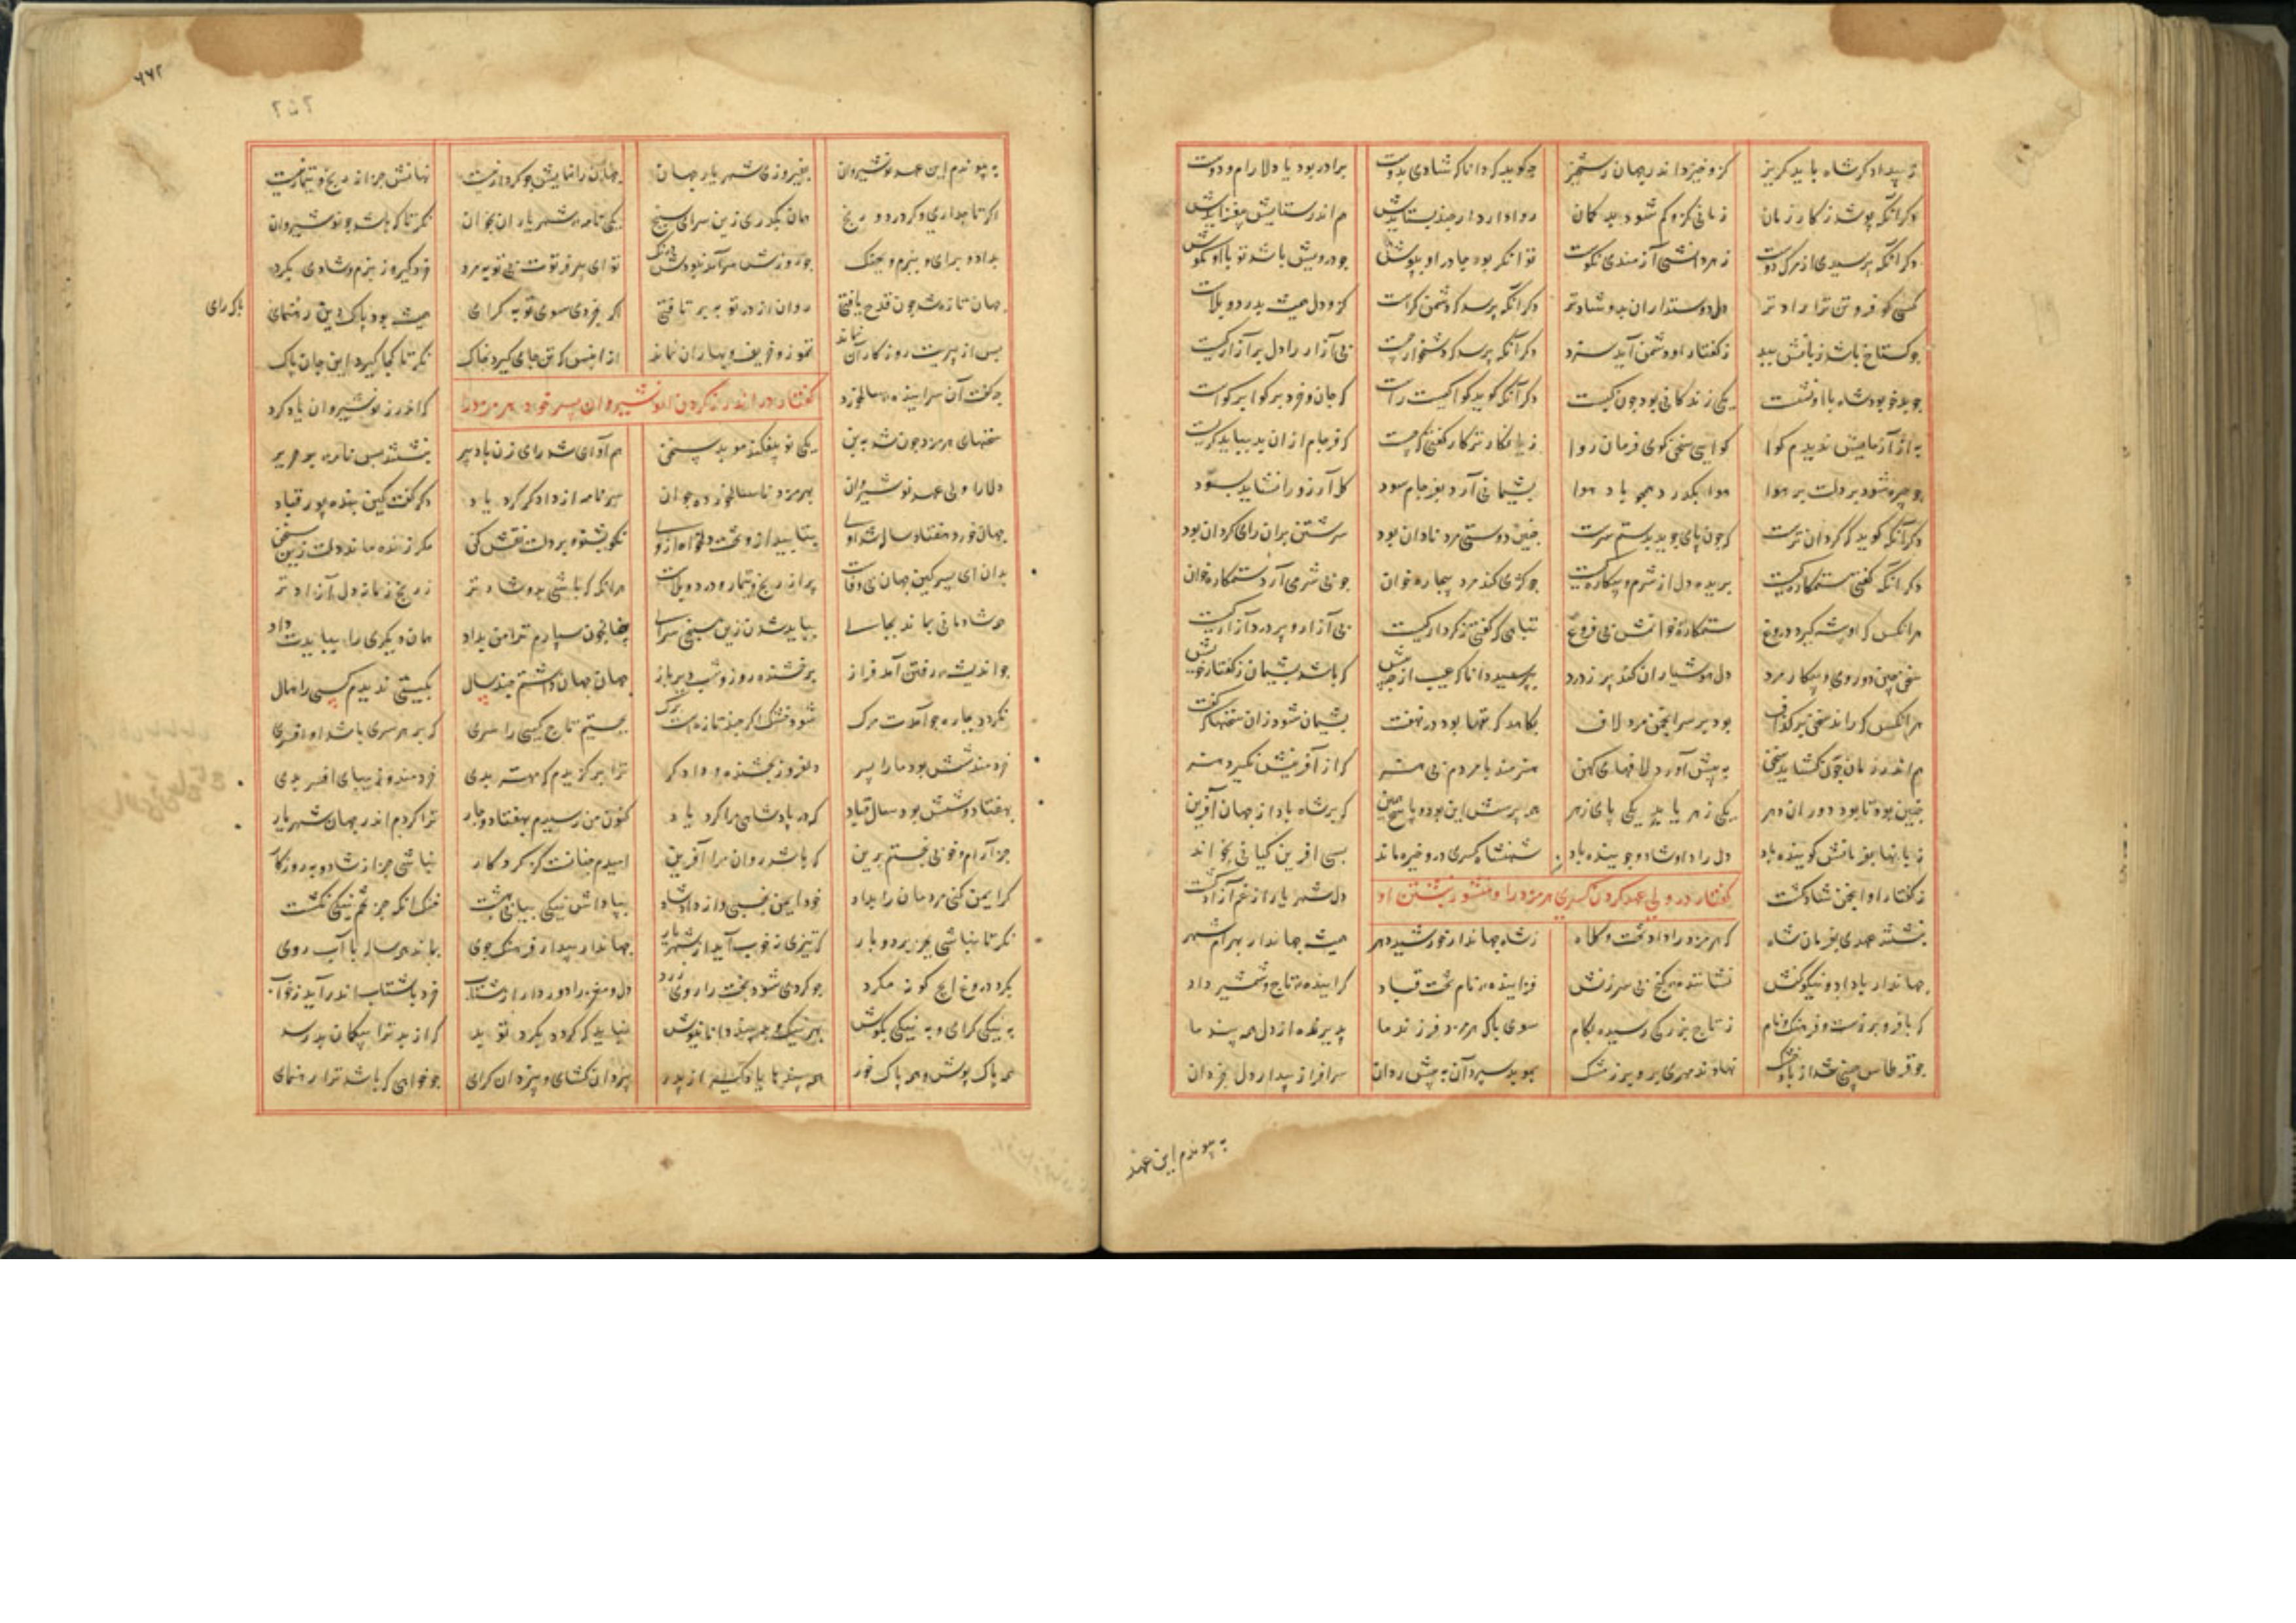 ز بیداد کر شاه باید کریز کزو خیزد اندر جهان رستخیز چه کوید که دانا که شادی بدوست برادر بود یا دلارام و دوست
دکر آنکه پوشد ز کار زمان زمانی کزو کم شود بد کمان روا دارد ار چند بستایدش هم اندر ستایش بیفزایدش
دکر آنکه پرسیدی از هر که دوست ز هر دانشی آزمندی نکوست توانکر بود چادر او بپوش چو درویش باشد تو با او بکوش
کسی کو فروتن تر و راد تر دل دوستداران بدو شادتر دکر آنکه پرسد که دشمن کراست کزو دل همیشه بدرد و بلاست
چو کستاخ باشد زبانش ببد ز کفتار او دشمن آید سزد دکر آنکه پرسد که دشخوار چیست بی آزار را دل پر آزار کیست
چو بدخو بود شاه با او نشست یکی زندکانی بود چون کبست دکر آنکه کوید کوا کیست راست که جان و خرد بر کوا بر کواست
به از آزمایش ندیدم کوا کوایی سخن کوی فرمان روا زیانکارتر کار کفتی که چیست که فرجام از ان بد بباید کریست
چو چیره شود بر دلت بر هوا هوا بکذرد همچو باد هوا پشیمانی آرد بفرجام سود کل آرزو را نشاید بسود
دکر آنکه کوید که کردان ترست که چون پای جوید بدستم سرست چنین دوستی مرد نادان بود سرشتن بران رای کردان بود
دکر آنکه کفتی ستمکاره کیست بریده دل از شرم و بیچاره کیست چو کژی کند مرد بیچاره خوان چو بی شرمی آرد ستمکاره خوان
هر انکس که او پیشه کیرد دروغ ستمکاره خوانمش بی فروغ تباهی که کفتی ز کردار کیست بی آزار و پر درد آزار کیست
سخن چین و دوروی و بیکار مرد دل هوشیاران کند پر ز درد بپرسید دانا که عیب از چه بیش که باشد پشیمان ز کفتار خویش
هر انکس که راند سخن بر کذاف بود بر سر انجمن مرد لاف بکاهد که تنها بود در نهفت پشیمان شود زان سخنها که کفت
هم اندر زمان چون کشاید سخن به پیش آورد لافهای کهن هنرمند با مردم بی هنر که از آفرینش نکیرد هنر
چنین بود تا بود دوران دهر یکی زهر یابد یکی پای زهر همه پرسش این بود و پاسخ همین که بر شاه باد از جهان آفرین
زبانها بفرمانش کوینده باد دل راد او شاد و جوینده باد شهنشاه کسری درو خیره ماند بسی آفرین کیانی بخواند
ز کفتار او انجمن شاد کشت کفتار در ولی عهد کردن کسری هرمزد را و منشور نبشتن او دل شهریار از غم آزاد کشت
نبشتند عهدی بفرمان شاه که هرمزد را داد تخت و کلاه ز شاه جهاندار خورشید دهر همیشه جهاندار بهرام شهر
جهاندار با داد و نیکو کنش نشاننده کنج بی سرزنش فزاینده نام تخت قباد کراینده تاج و شمشیر داد
که با فر و برزست و فرهنک و نام ز تاج بزرکی رسیده بکام سوی پاک هرمزد فرزند ما پذیرنده از دل همه پند ما
چو قرطاس چینی شد از باد خشک نهادند مهری برو بر ز مشک بموبد سپرد آن به پیش ردان سرافراز بیدار دل بخردان
به پیوندم این عهد
۶۶۲
۲۵۲
به پیوندم این عهد نوشیروان بفیروزی شهریار جهان جهان را نمایش چو کردار نیست نهانش جز از رنج و تیمار نیست
اکر تاجداری و کر درد و رنج همان بکذری زین سرای سپنج یکی نامه شهریاران بخوان نکر تا که باشد چو نوشیروان
بداد و برای و ببزم و بجنک چو روزش سرآمد نبودش درنک تو ای پیر فرتوت بی توبه مرد خرد کیر و ز بزم و شادی بکرد
جهان تازه شد چون قدح یافتی روان از در توبه بر تافتی اکر بخردی سوی توبه کرای همیشه بود پاک دین رهنمای
پاک رای
پس از پیریت روزکاران نماند تموز و خریف و بهاران نماند از ان پس که تن جای کیرد بخاک نکر تا کجا کیرد این جان پاک
چه کفت آن سراینده سالخورد کفتار در اندرز کردن انوشیروان پسر خود هرمزد را که اندرز نوشیروان یاد کرد
سخنهای هرمزد چون شد به بن یکی نو پی افکند موبد سخن هم آوای شد رای زن با دبیر نبشتند پس نامه بر حریر
دلارا ولی عهد نوشیروان بهرمزد ناسالخورده جوان سر نامه از دادکر کرد یاد دکر کفت کین پند پور قباد
بدان ای پسر کین جهان بی وفاست پر از رنج و تیمار و درد و بلاست هر انکه که باشی بدو شادتر ز رنج زمانه دل آزادتر
همه شادمانی بماند بجای بباید شدن زین سپنجی سرای چنان چون سپارم ترا من بداد همان دیکری را بباید داد
چو اندیشه رفتن آمد فراز برخشنده روز و شب دیرباز بکیتی ندیدم کسی را همال
نکردد بچاره چو آمدت مرک شود خشک اکر چند تازه ست برک بجستیم تاج کیی را سری که بر هر سری باشد او افسری
خردمند شش بود ما را پسر دلفروز و بخشنده و دادکر ترا برکزیدم که مهتر بدی خردمند و زیبای افسر بدی
بهفتاد و شش بود سال قباد که در پادشاهی مرا کرد یاد کنون من رسیدم بهفتاد و چار ترا کردم اندر جهان شهریار
جز آرام و خوبی نجستم برین که باشد روان مرا آفرین امیدم چنانست کز کردکار نباشی جز از شاد و به روزکار
کر ایمن کنی مردمان را بداد خود ایمن بخسبی و از داد شاد بپاداش نیکی بیابی بهشت خنک انکه جز تخم نیکی نکشت
نکر تا نباشی بجز بردبار که تیزی نه خوب آید از شهریار جهاندار بیدار فرهنک جوی بماند همه ساله با آب روی
بکرد دروغ ایچ کونه مکرد چو کردی شود بخت را روی زرد دل و مغز را دور دار از شتاب خرد با شتاب اندر آید بخواب
به نیکی کرای و به نیکی بکوش بهر نیک و بد پند دانا نیوش نباید که کردد بکرد تو بد که از بد ترا بیکمان بد رسد
همه پاک پوش و همه پاک خور همه پندها یاد کیر از پدر بیزدان کشای و بیزدان کرای چو خواهی که باشد ترا رهنمای